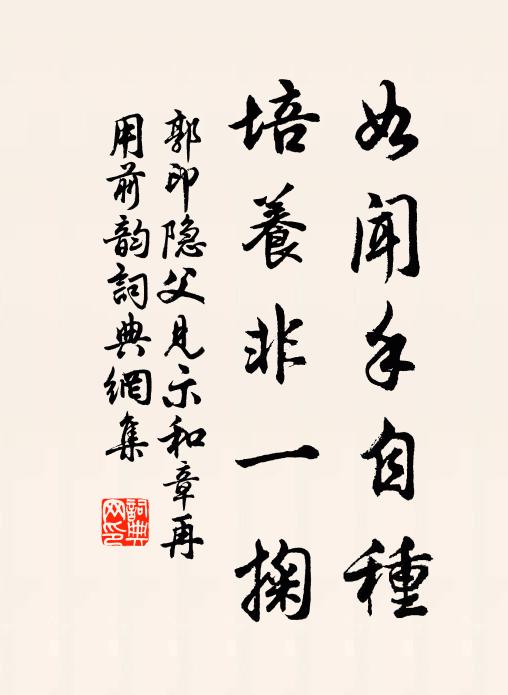 如聞手自種
培養非一掬
郭印隐父見示和章再
用前韵詞典網集
詞典网印